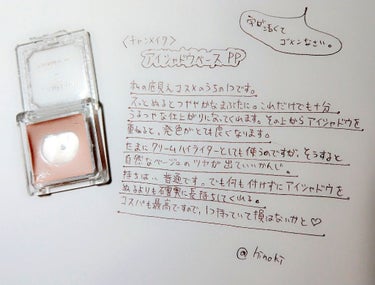 字が汚くて
ゴメンなさい。
〈キャンメイク〉
アイシャドウベース PP
私の底見えコスメのうちの1つです。
さっとぬるとつややかなまぶたに。これだけでも十分
うるつやな仕上がりになってくれます。その上からアイシャドウを
重ねると、発色がとても良くなります。
たまにクリームハイライターとしても使うのですが、そうすると
自然なベージュのツヤが出ていいかんじ。
持ちは、普通です。でも何も付けずにアイシャドウを
ぬるよりも確実に長持ちしてくれる。
コスパも最高ですので、1つ持っていて損はないかと♡
@hinoki